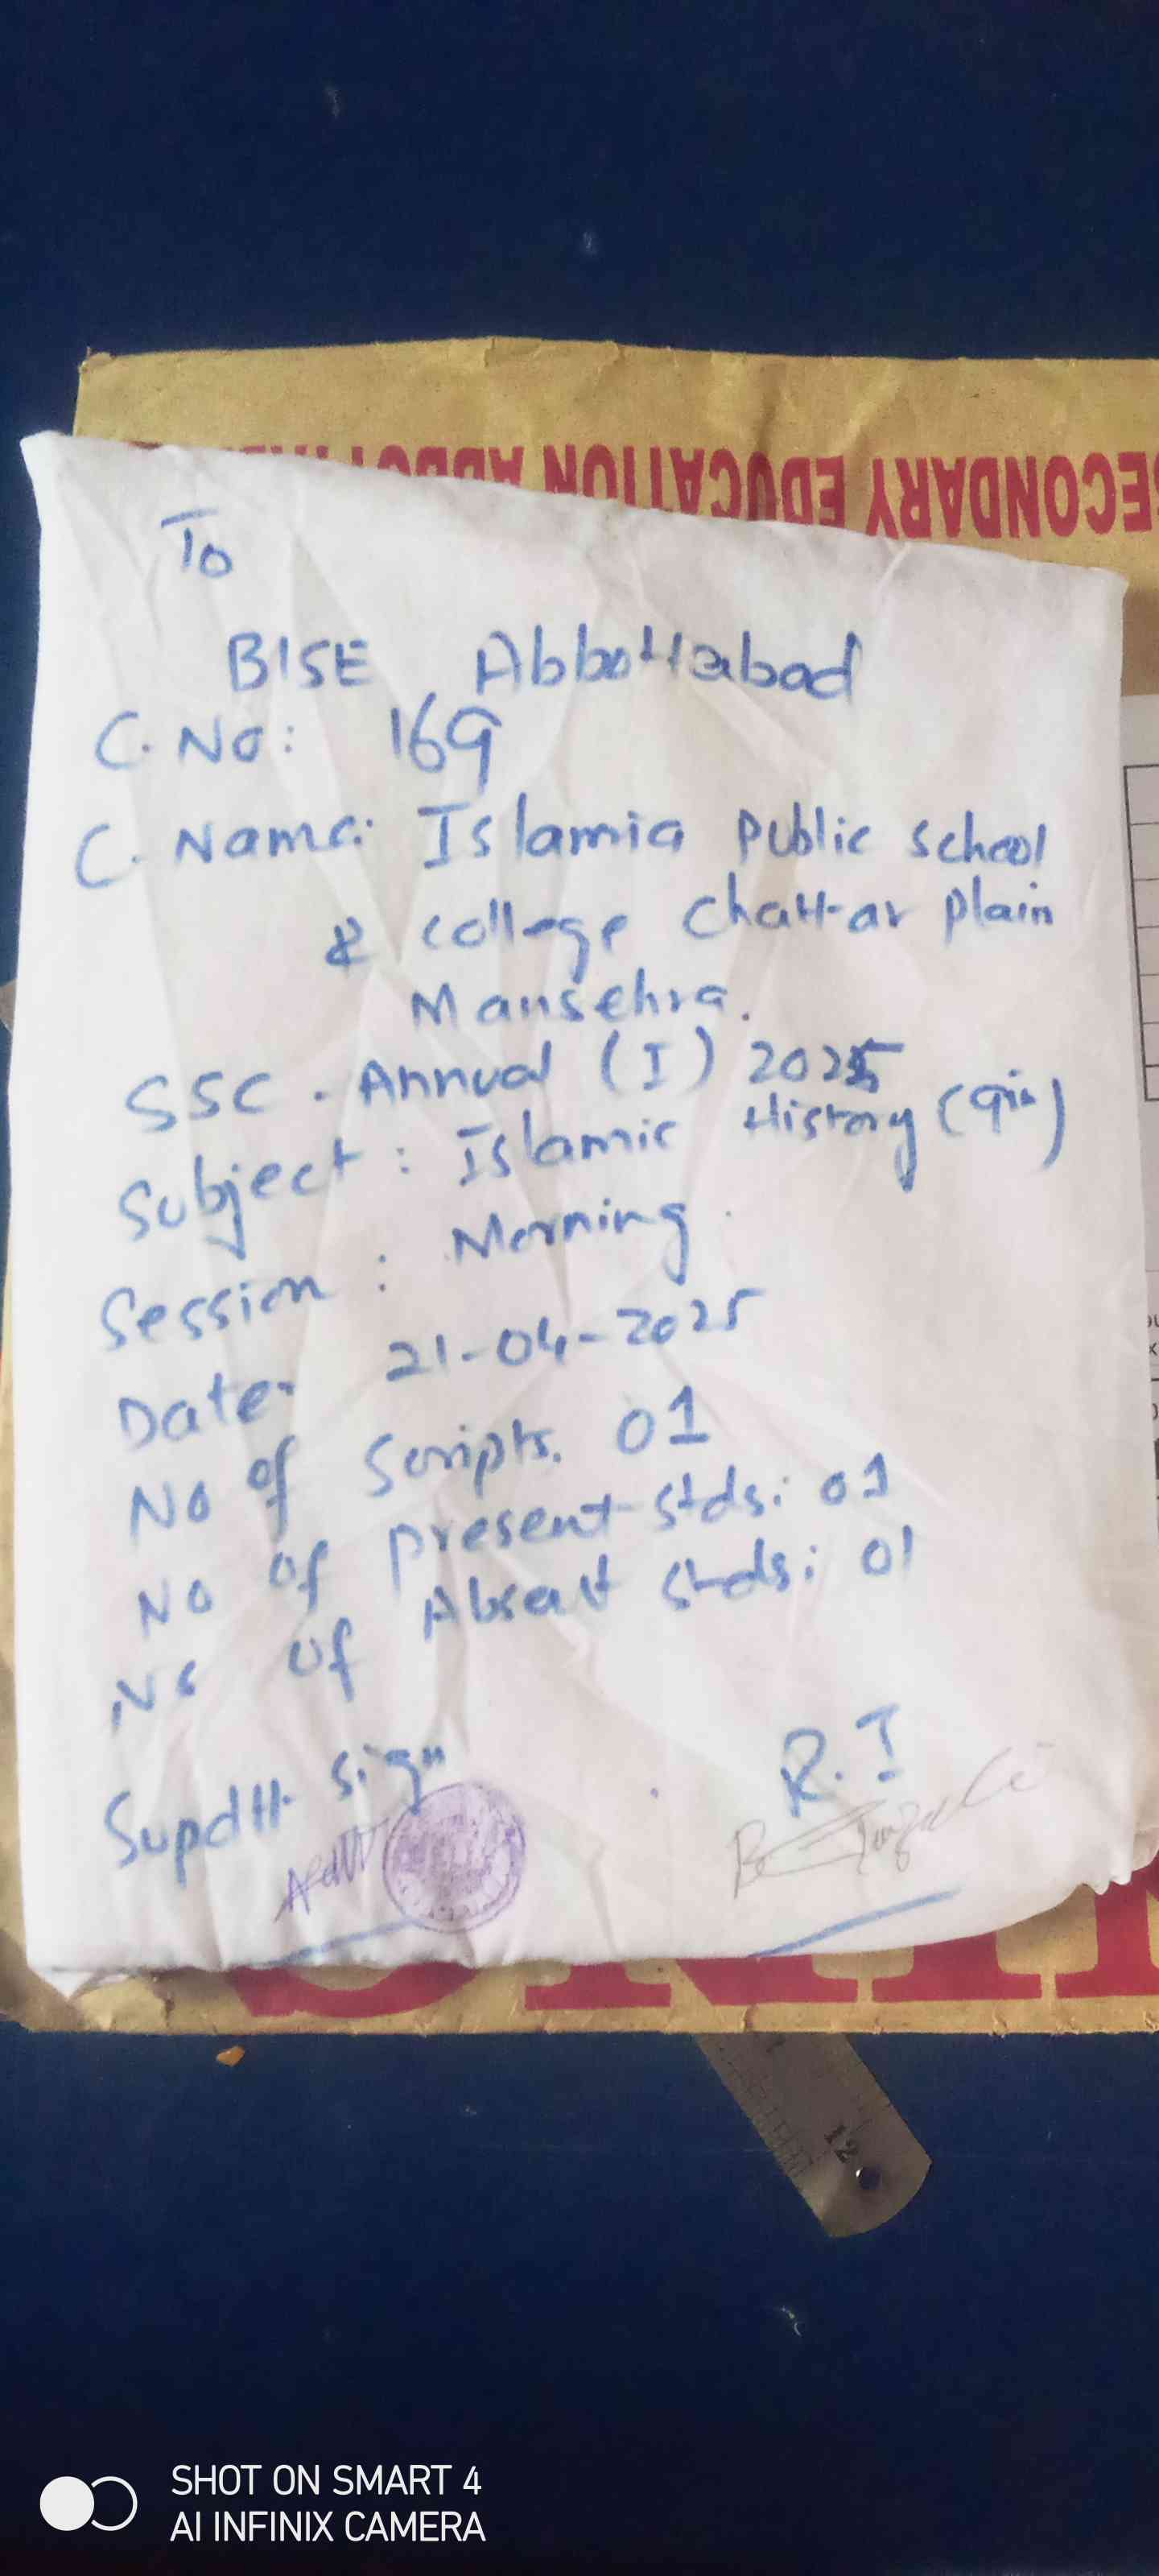 SECONDARY EDUCATION
To
BISE Abbottabad
C. No: 169
C. Name: Islamia public school
& college Chattar plain
Mansehra.
SSC. Annual (I) 2025
Subject: Islamic History (9th)
Session: Morning
Date- 21-04-2025
No of Scripts. 01
No of present stds: 01
No of Absent stds: 01
Supdtt sign
R.I
12
SHOT ON SMART 4
AI INFINIX CAMERA